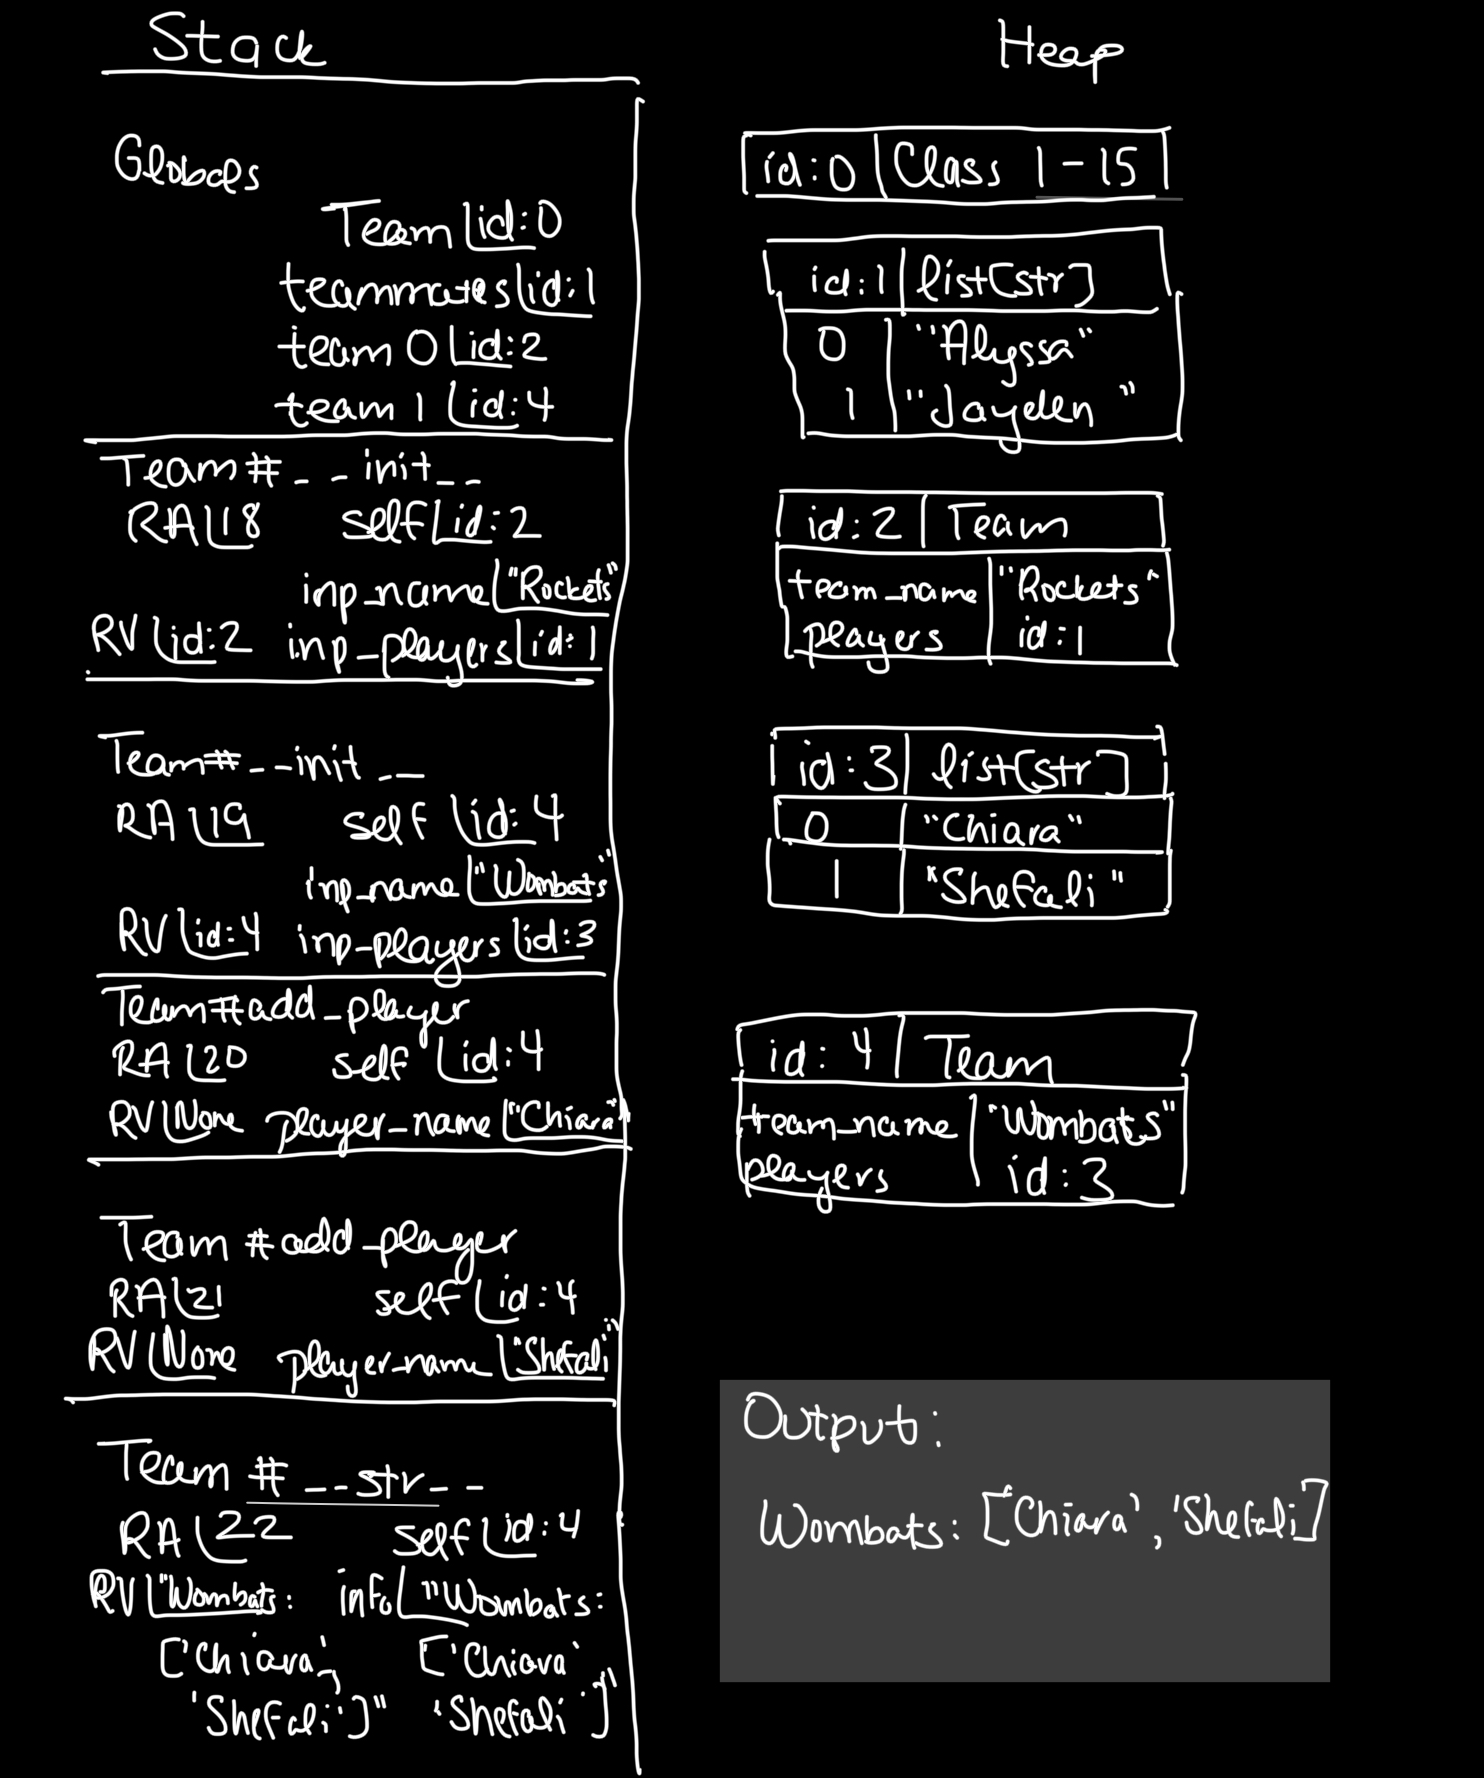 Stack
Globals
Team id:0
teammates id:1
team 0 id:2
team 1 id:4
Team#__init__
RA 18 self id:2
inp_name "Rockets"
RV id:2 inp_players id:1
Team#__init__
RA 19 self id:4
inp_name "Wombats"
RV id:4 inp-players id:3
Team#add_player
RA 20 self id:4
RV None player_name "Chiara"
Team #add_player
RA 21 self id:4
RV None player_name "Shefali"
Team #__str__
RA 22 self id:4
RV "Wombats: info "Wombats:
['Chiara', ['Chiara'
'Shefali']" 'Shefali']"
Heap
id:0 Class 1-15
id:1 list[str]
0 "Alyssa"
1 "Jayden"
id:2 Team
team_name "Rockets"
players id:1
id:3 list[str]
0 "Chiara"
1 "Shefali"
id:4 Team
team_name "Wombats"
players id:3
Output:
Wombats: ['Chiara', 'Shefali]